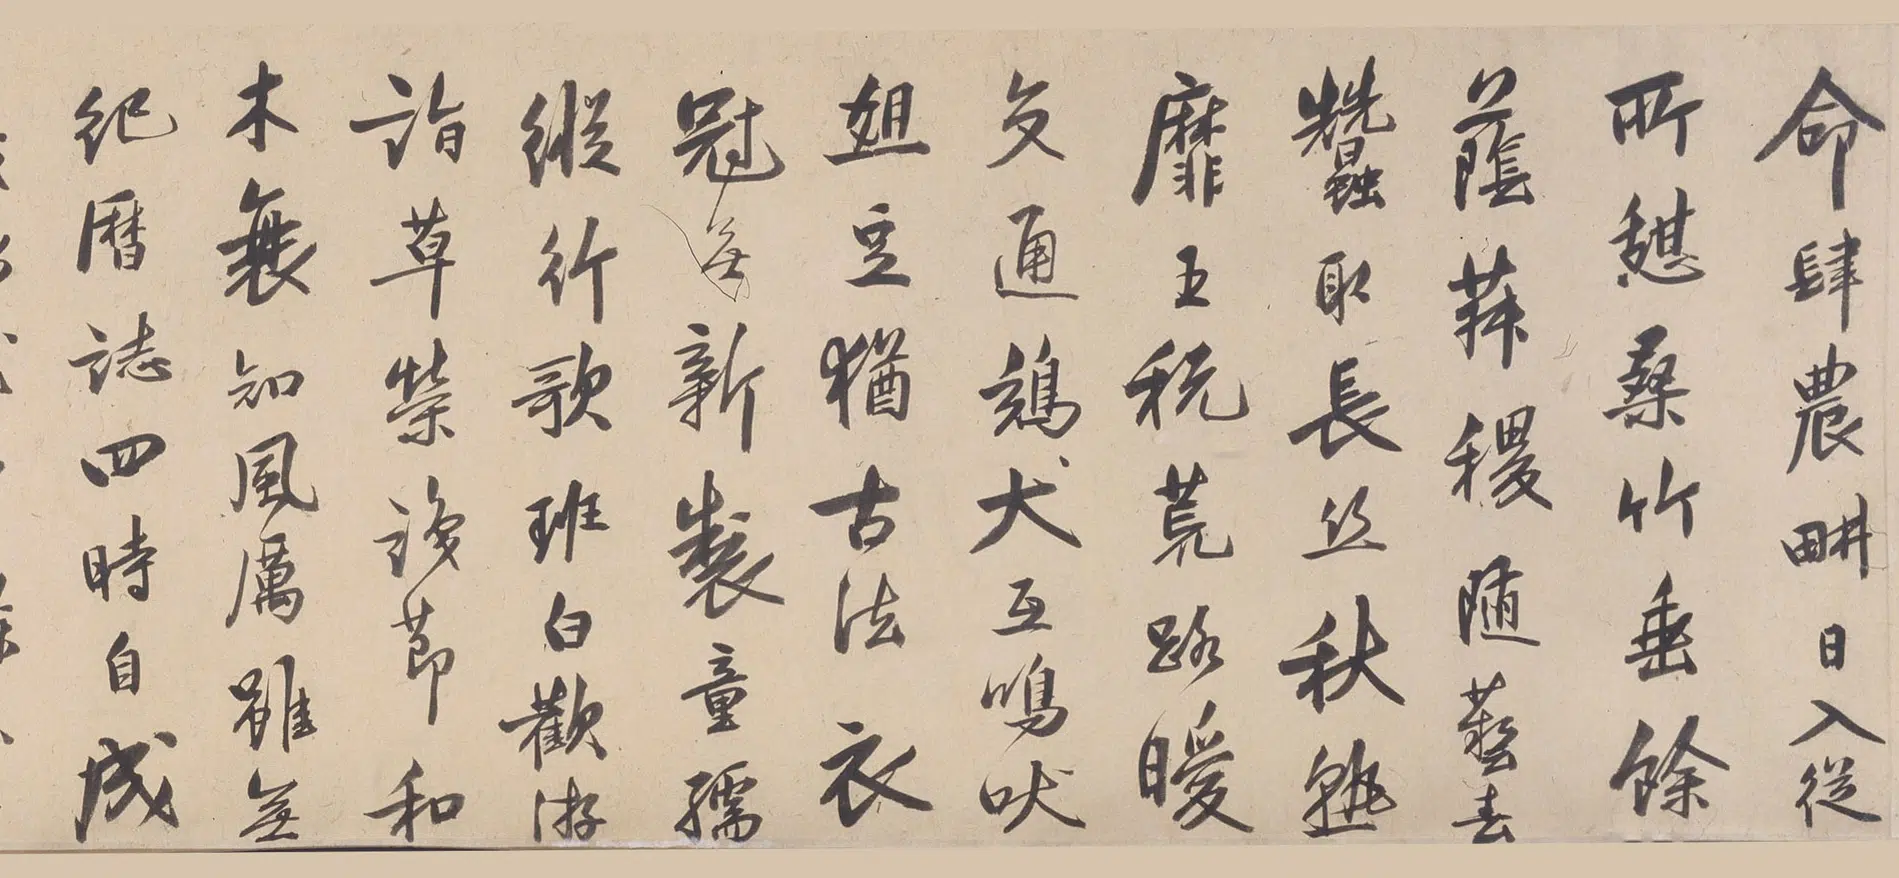 命肆農畊日入從
所憇桑竹垂餘
蔭菽稷隨藝春
蠶取長丝秋熟
靡王税荒路曖
交通鷄犬互鳴吠
俎豆猶古法衣
冠無新製童孺
縱行歌班白歡游
詣草榮識節和
木衰知風厲雖無
紀曆誌四時自成